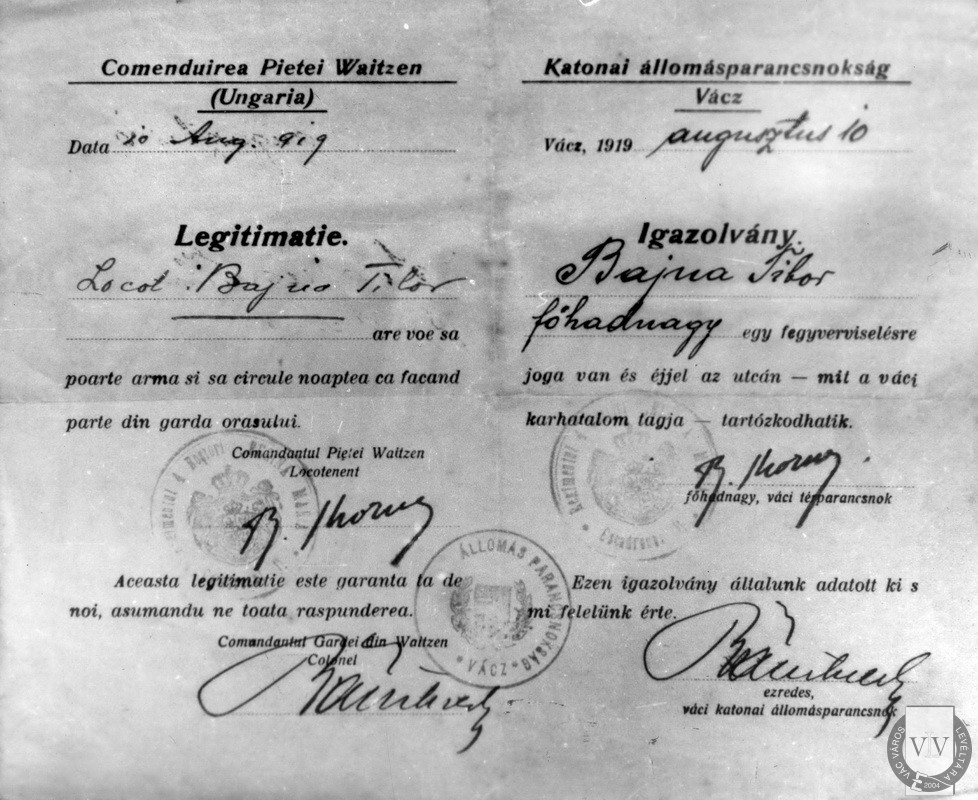 Comenduirea Pietei Waitzen
(Ungaria)
Data 10 Aug. 919
Legitimatie.
Locot. Bajna Tibor
are voe sa
poarte arma si sa circule noaptea ca facand
parte din garda orasului.
Comandantul Pieței Waitzen
Locotenent
Aceasta legitimatie este garanta ta de
noi, asumandu ne toata raspunderea.
Comandantul Gardei din Waitzen
Colonel
Katonai állomásparancsnokság
Vácz
Vácz, 1919 augusztus 10
Igazolvány.
Bajna Tibor
főhadnagy egy fegyverviselésre
joga van és éjjel az utcán — mit a váci
karhatalom tagja — tartózkodhatik.
főhadnagy, váci térparancsnok
Ezen igazolvány általunk adatott ki s
mi felelünk érte.
ezredes,
váci katonai állomásparancsnok
ÁLLOMÁS PARANCSNOKSÁG
VÁCZ
VÁC VÁROS LEVÉLTÁRA
2004